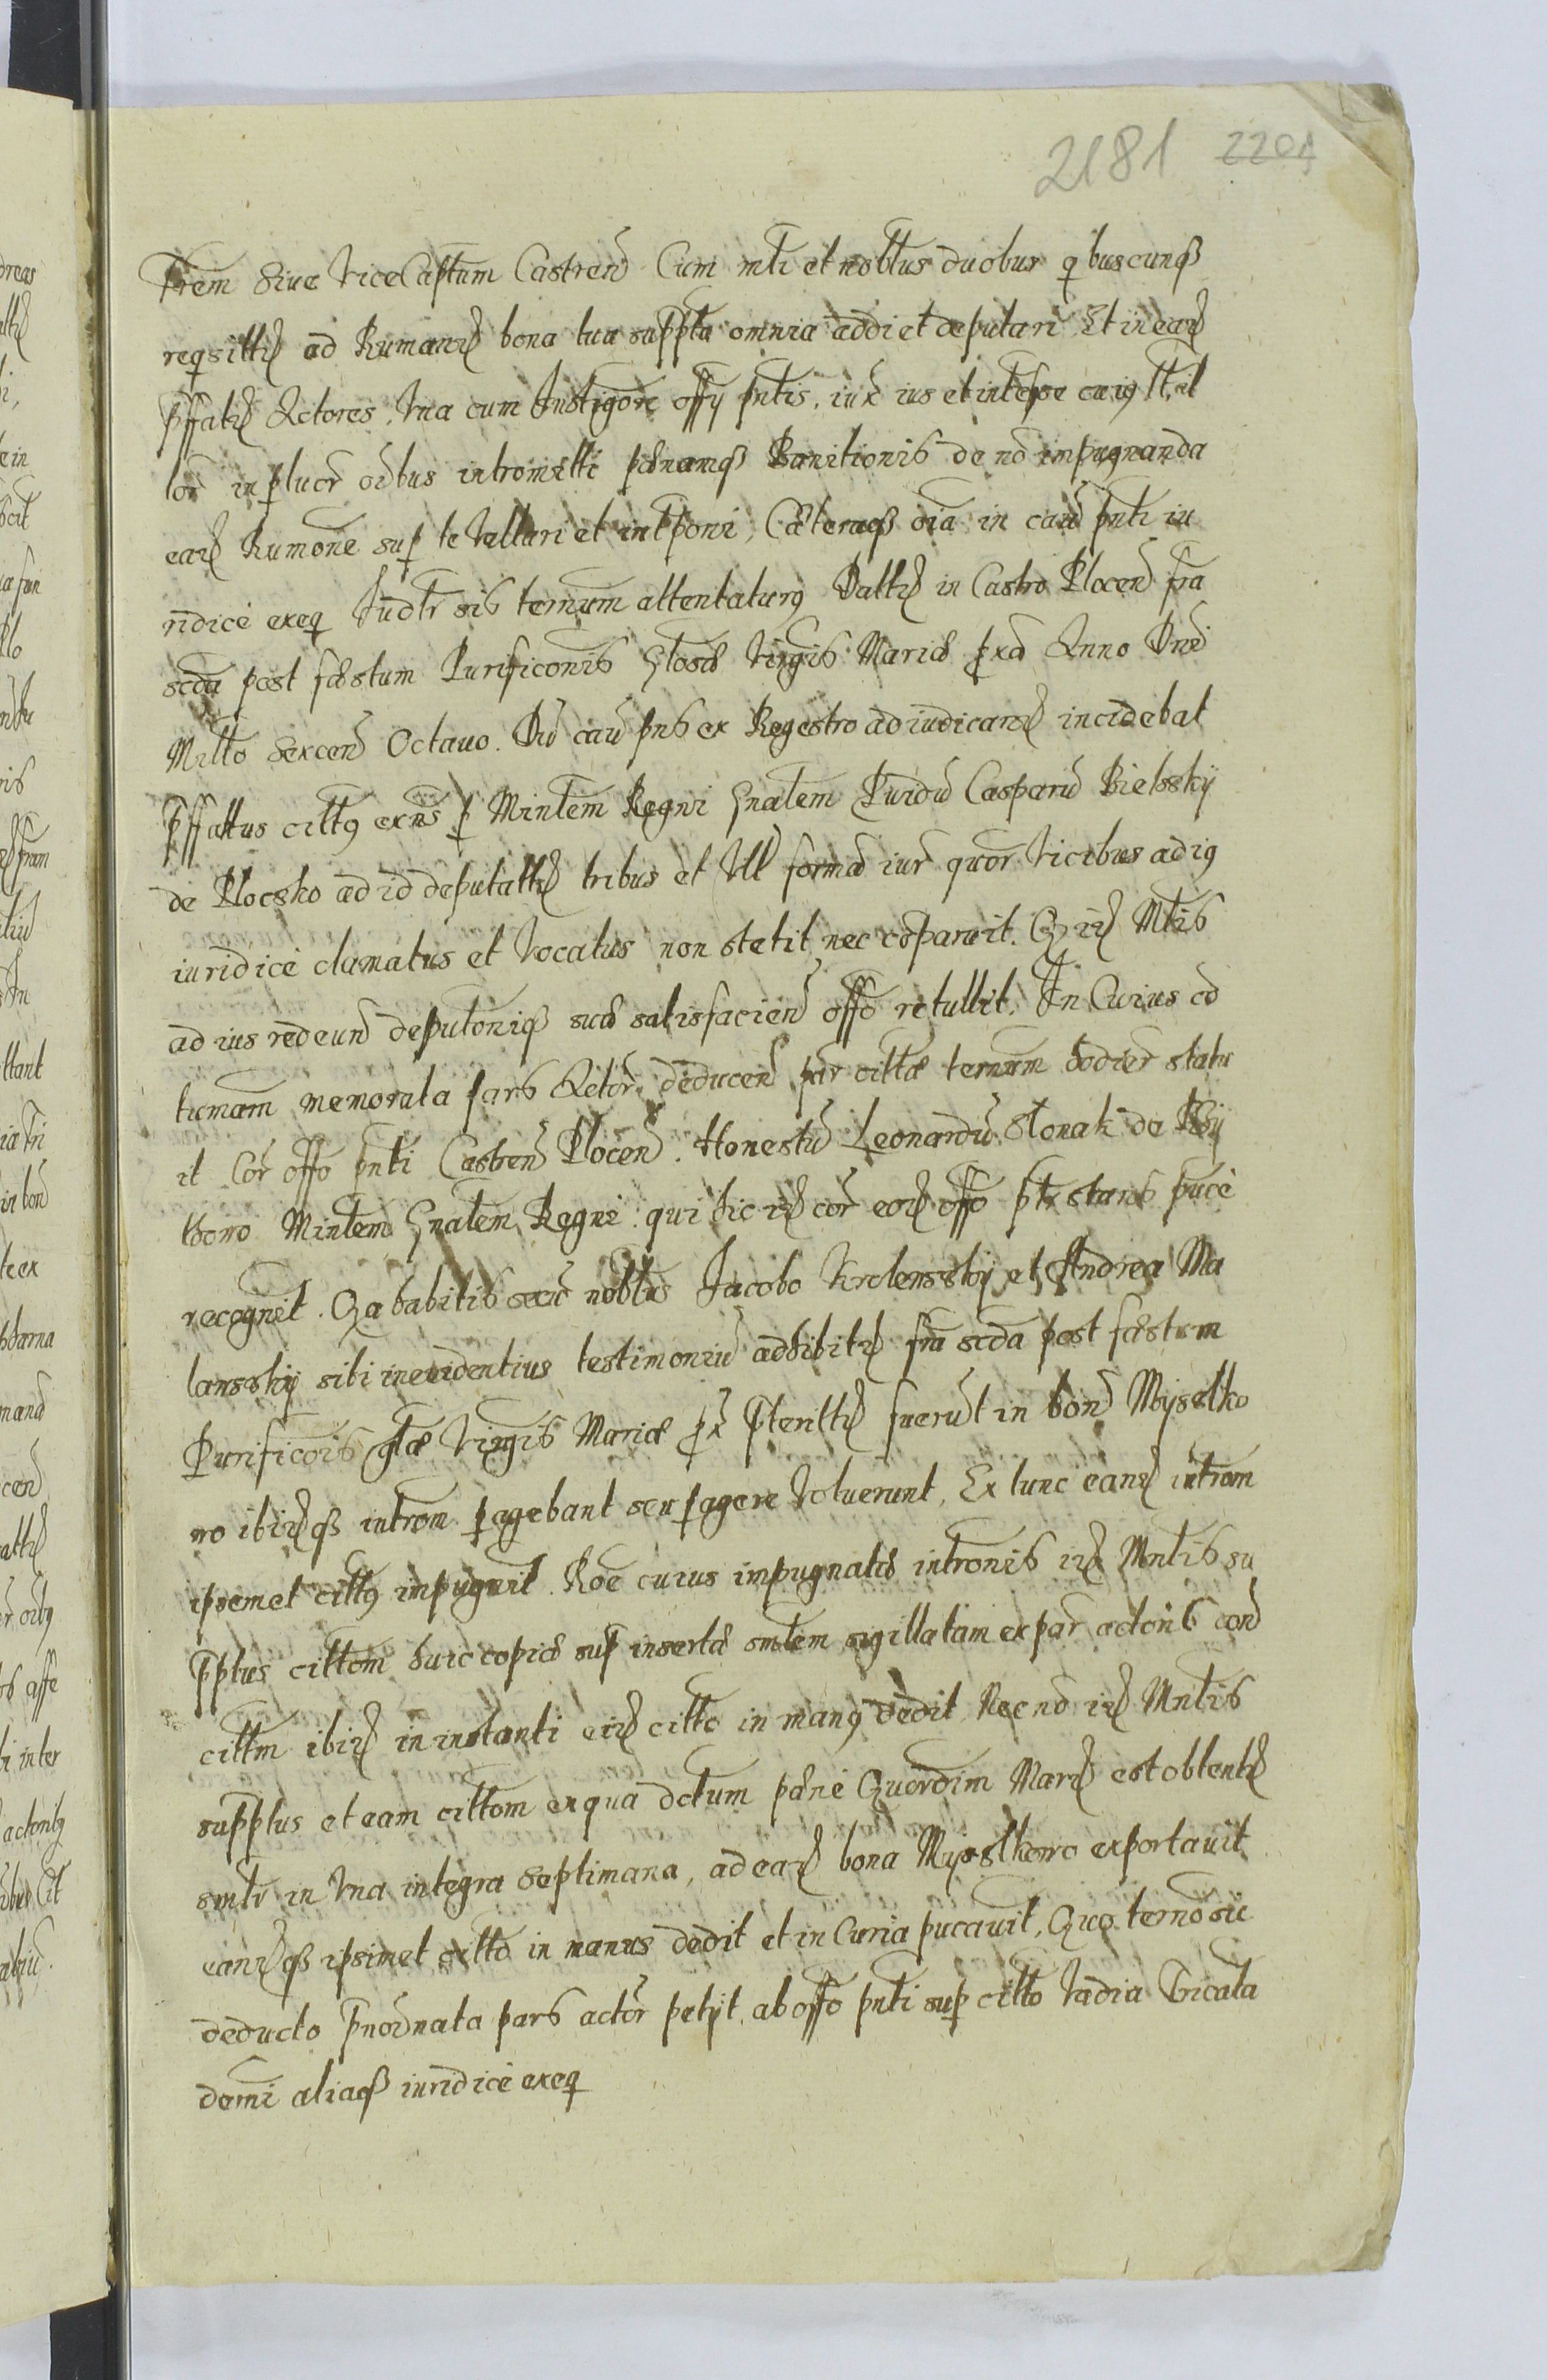 2181 2201
Trem Siue ViceCaptum Castren Cum mti et nobtus duobus qbuscunqß
reqsittis ad Rumand bona tua suppta omnia addi et deputari Et in ead
pffatis Actores, Vna cum Instigore offy pntis, iux ius et intesse cuiq
lor in pluor oibus intromitti pænamqß Banitionis de no impugnanda
ead Rumone sup te Vallari et intponi, Cæteraqß oia in cau pnti iu
ridicè exeq Iudtr sis termum attentaturq Datts in Castro Plocen fra
scda post fæstum Purificonis Gtosæ Virgis Mariæ pxa Anno Dni
Millo Sexcen Octauo. Du cau pns ex Regestro adiudicand incidebat
Pffattus cittq exns p Mintem Regni Gnatem Puidu Casparu Bielssky
de Plocsko ad id deputatts tribus et Vll forma iur quor Vicibus ad iq
iuridicè clamatus et Vocatus non stetit nec coparuit. Qz id Mtis
ad ius redeun deputoniqß suæ satisfacien offo retullit. In Cuius co
tumam memorata pars Actor deducen par cittæ termum hodier statu
it Cor offo pnti Castren Plocen. Honestu Leonardu Slonak de
Mintem Gnatem Regni: qui sic id cor eod offo ptr stans pucè
recognit. Qa habitis secu nobtus Jacobo Krolewssky et Andrea Ma
lanssky sibi in euidentius testimoniu adhibitis fra scda post fæstum
Purificois gtæ Virgis Mariæ px Pteritts fuerut in bon Myselko
wo ibidqß introm pagebant seu pagere Voluerunt, Ex tunc eand introm
ipsemet cittq impugnit. Roe cuius impugnatæ intronis id Mntis su
Pptus cittom huic copiæ sup insertæ smtem sigillatam ex par actoris con
cittm ibid in instanti eid citto in manq dedit Nec no id Mntis
suppptus et eam cittom ex qua dctum pænè Quordim Mard est obtents
smtr in Vna integra septimana, ad ead bona Myselkowo exportauit
eandqß ipsimet citto in manus dedit et in Curia pucauit, Quo termo sic
deducto Pnoinata pars actor petijt, ab offo pnti sup citto Vadia Tricata
demi aliaqß iuridicè exeq